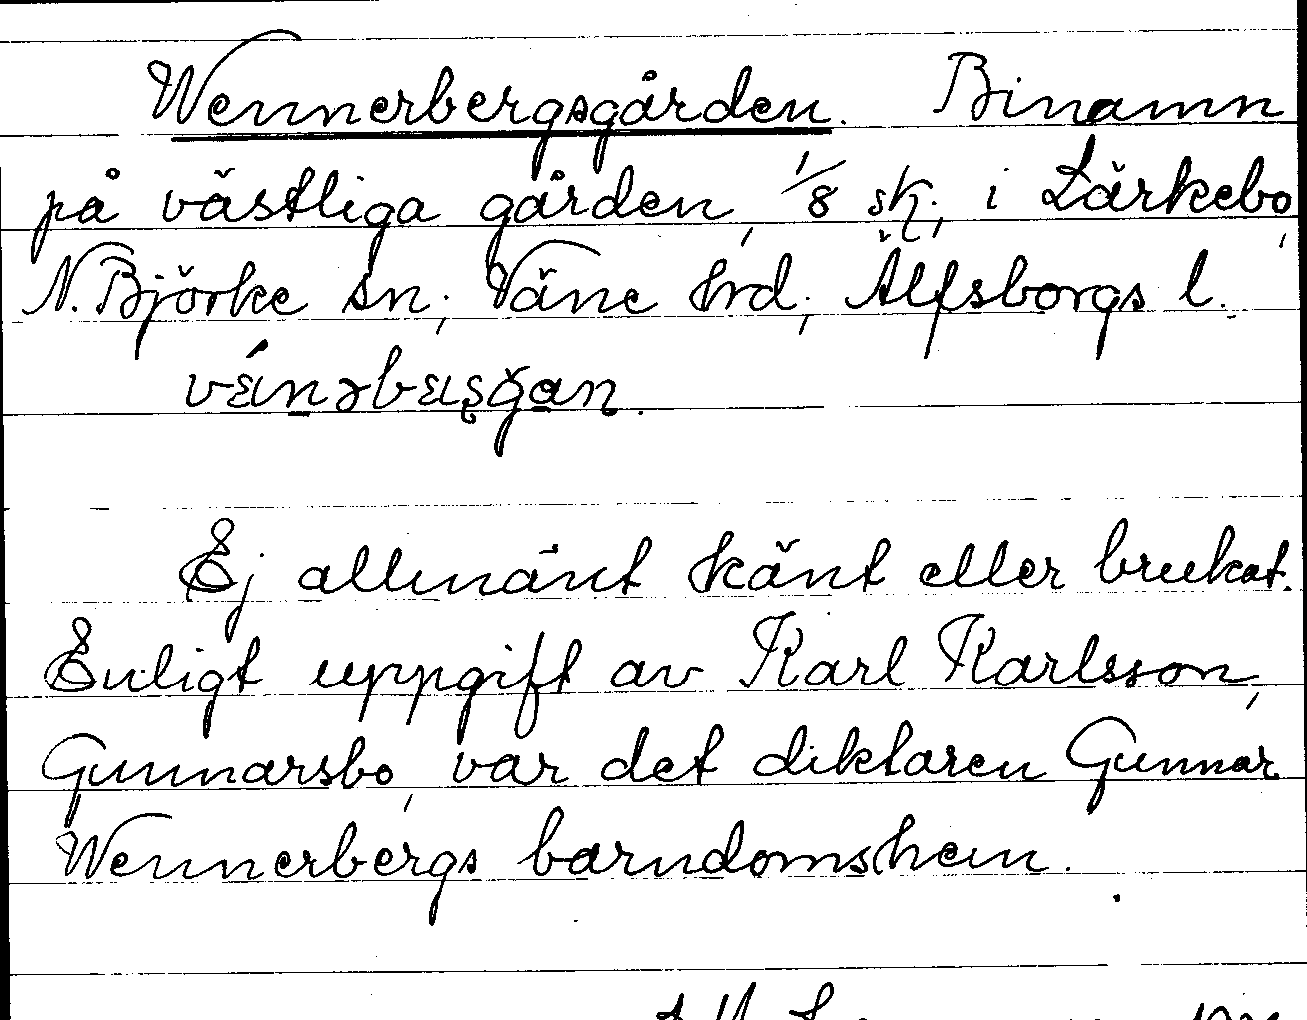 Wennerbergsgården. Binamn
på västliga gården, 1/8 sk., i Lärkebo,
N. Björke sn, Väne hrd, Älfsborgs l.
Ej allmänt känt eller brukat.
Enligt uppgift av Karl Karlsson,
Gunnarsbo, var det diktaren Gunnar
Wennerbergs barndomshem.